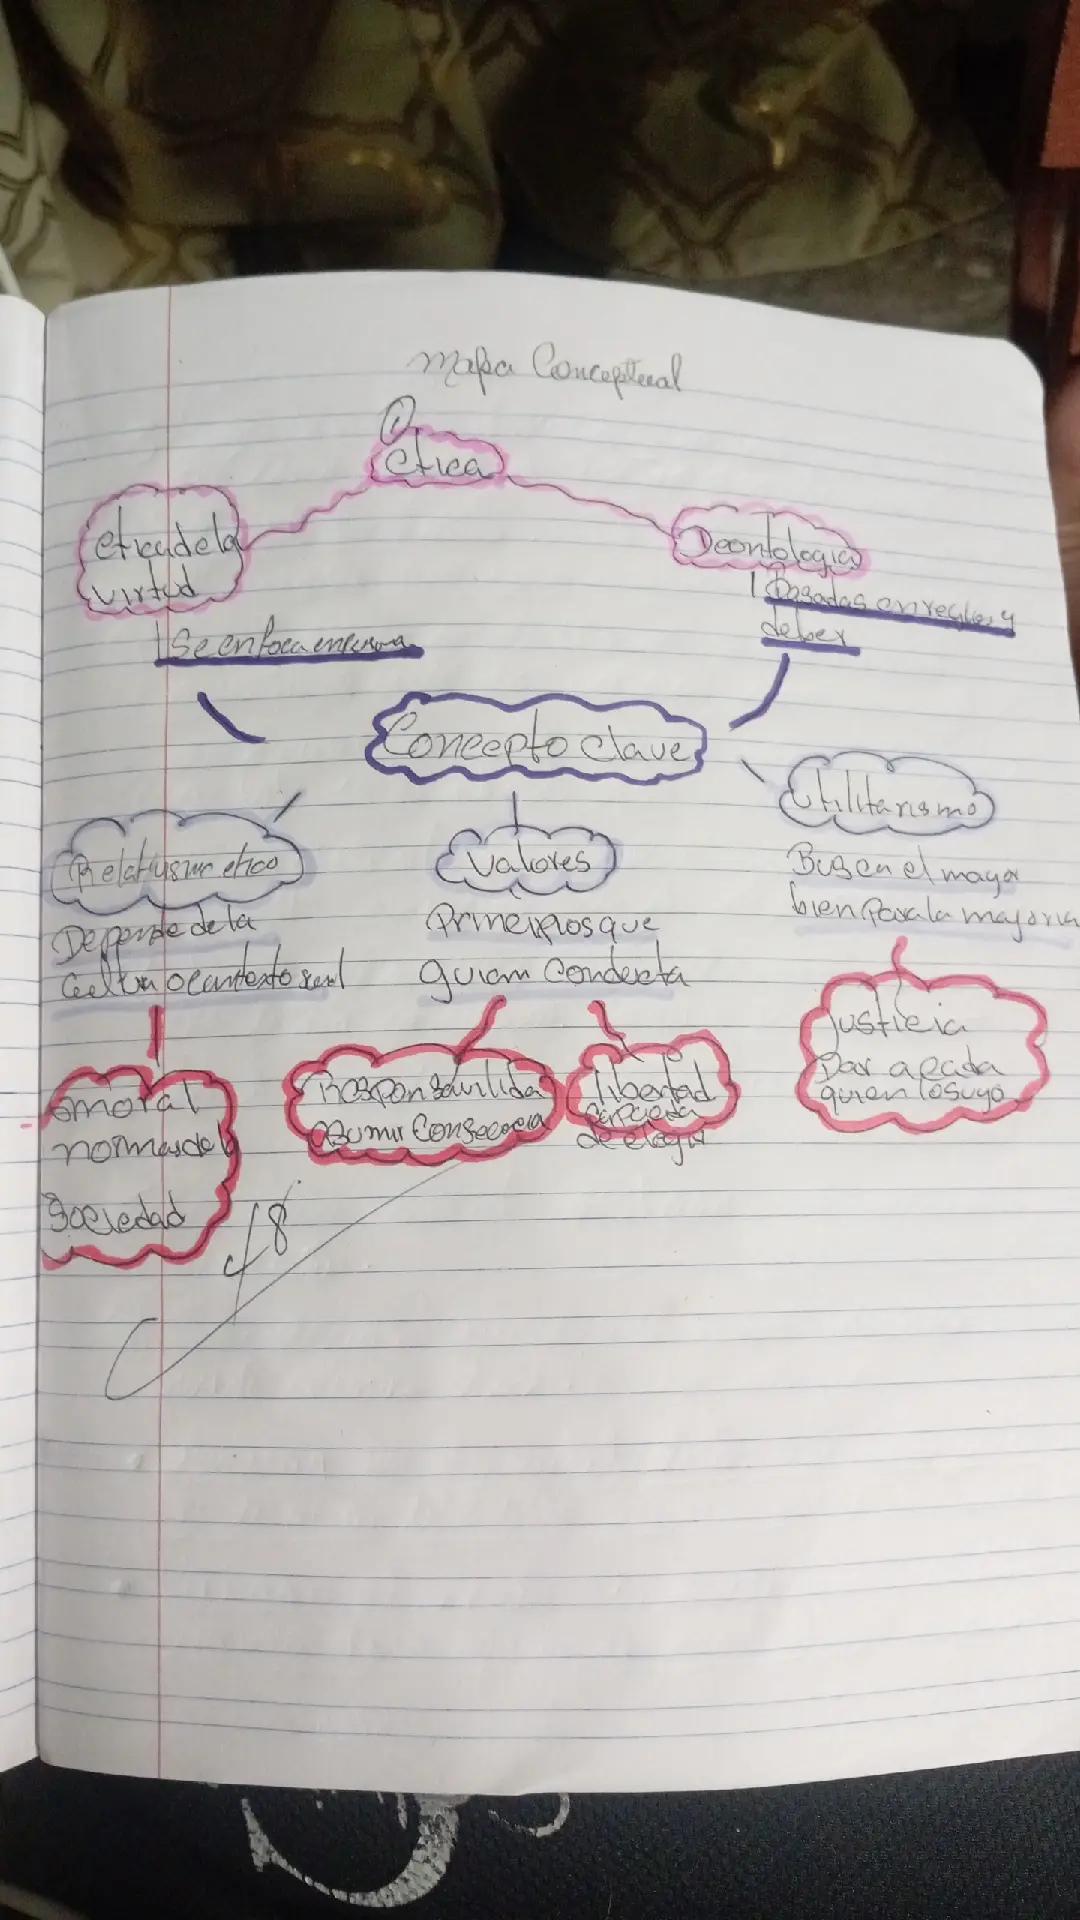 Mapa Conceptual
1
etica
etica de la
virtud
Deontologia
Basadas en reglas y
deber
Se enfoca en
Concepto clave
utilitarismo
Relativismo etico
Valores
Busca el mayor
bien para la mayoria
Depende de la
cultura o contexto social
Principios que
guian conducta
justicia
Dar a cada
quien lo suyo
moral
normas de la
sociedad
Responsavilida
asumir
libertad
de elegir
18